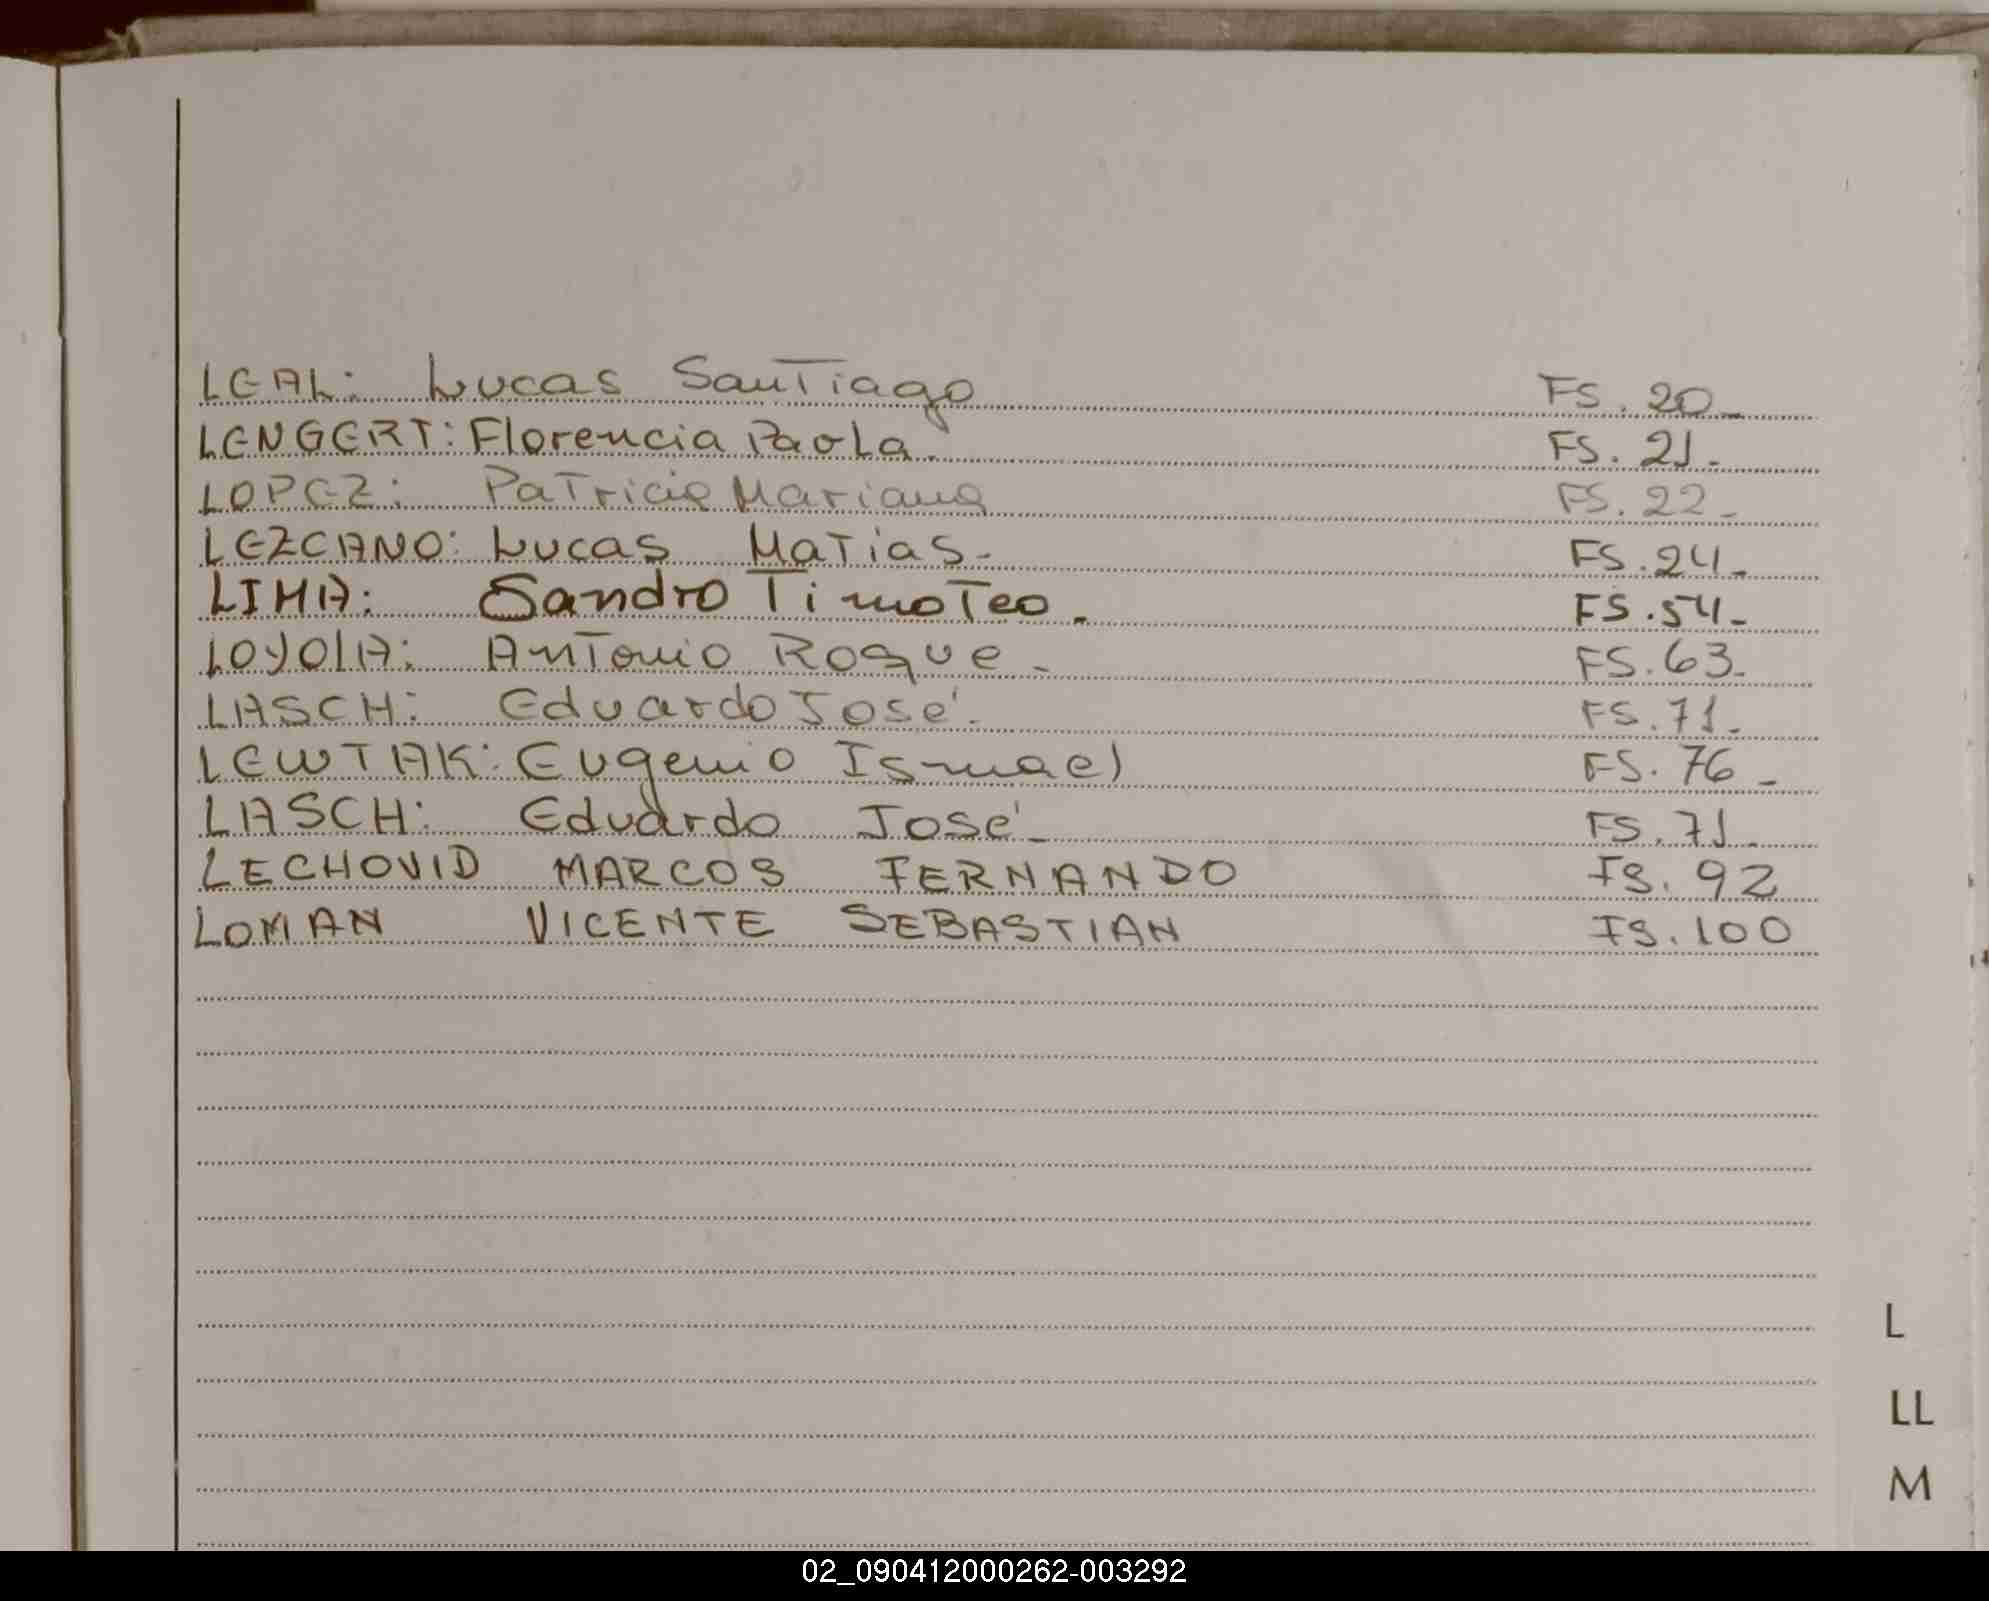 LEAL: Lucas Santiago FS. 20_
LENGERT: Florencia Paola. FS. 21_
LOPEZ: Patricia Mariana FS. 22_
LEZCANO: Lucas Matias_ FS. 24_
LIMA: Sandro Timoteo. FS. 54_
LOYOLA: Antonio Roque_ FS. 63_
LASCH: Eduardo José. FS. 71_
LEWTAK: Eugenio Ismael FS. 76_
LASCH: Eduardo José_ FS. 71_
LECHOVID MARCOS FERNANDO FS. 92
LOMAN VICENTE SEBASTIAN FS. 100
L
LL
M
02_090412000262-003292